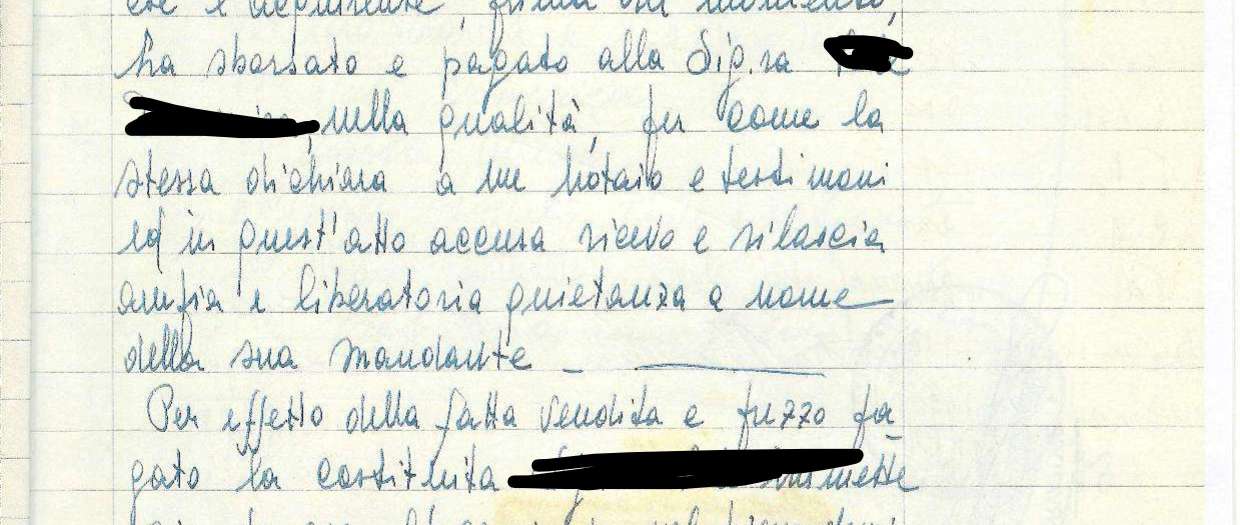 ha sborsato e pagato alla Sig.ra
nella qualità, per come la
stessa dichiara a me notaio e testimoni
ed in quest'atto accusa ricevo e rilascia
ampia e liberatoria quietanza a nome
della sua mandante _
Per effetto della fatta vendita e prezzo pa_
gato la costituita immette